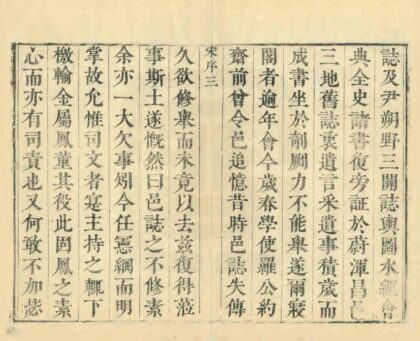 誌及尹朔野三關誌輿圖水經會
典全史諸書復旁証於蔚渾昌邑
三地舊誌裒遺言采遺事積歲而
成書坐於剞劂力不能舉遂爾寢
閣者逾年會今歲春學使羅公約
齋前曾令邑追憶昔時邑誌失傳
宋序三
久欲修舉而未竟以去茲復得蒞
事斯土遂慨然曰邑誌之不修素
余亦一大欠事矧今任憲綱而明
掌故允惟司文者寔主持之輒下
檄輸金屬鳳董其役此固鳳之素
心而亦有司責也又何敢不加毖